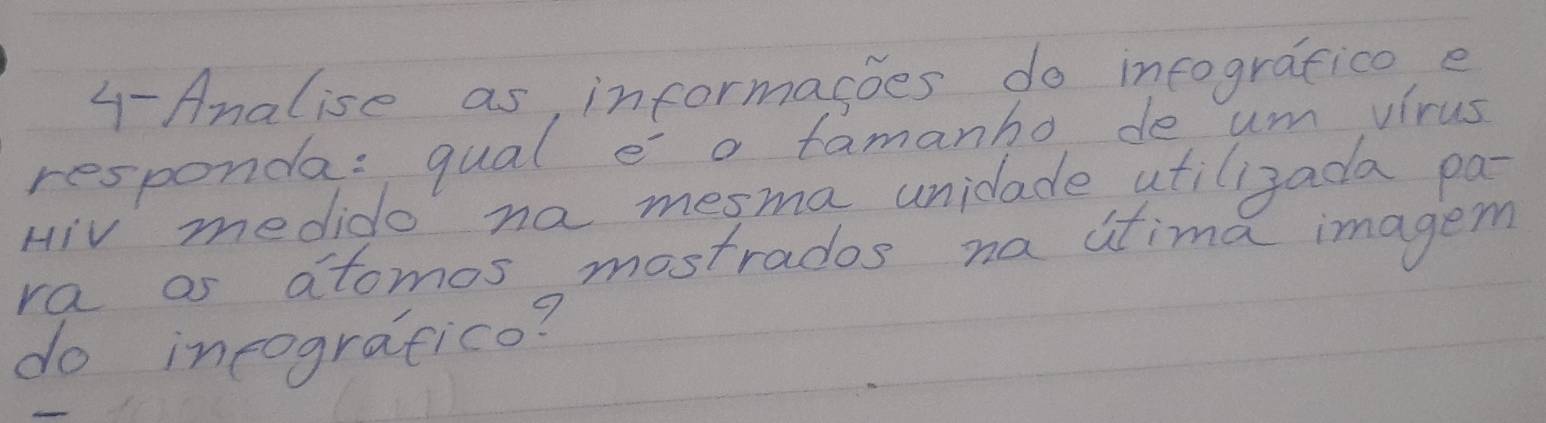 4-Analise as informações do infográfico e
responda: qual é o tamanho de um vírus
HIV medido na mesma unidade utilizada pa-
ra os átomos mostrados na útima imagem
do infográfico?